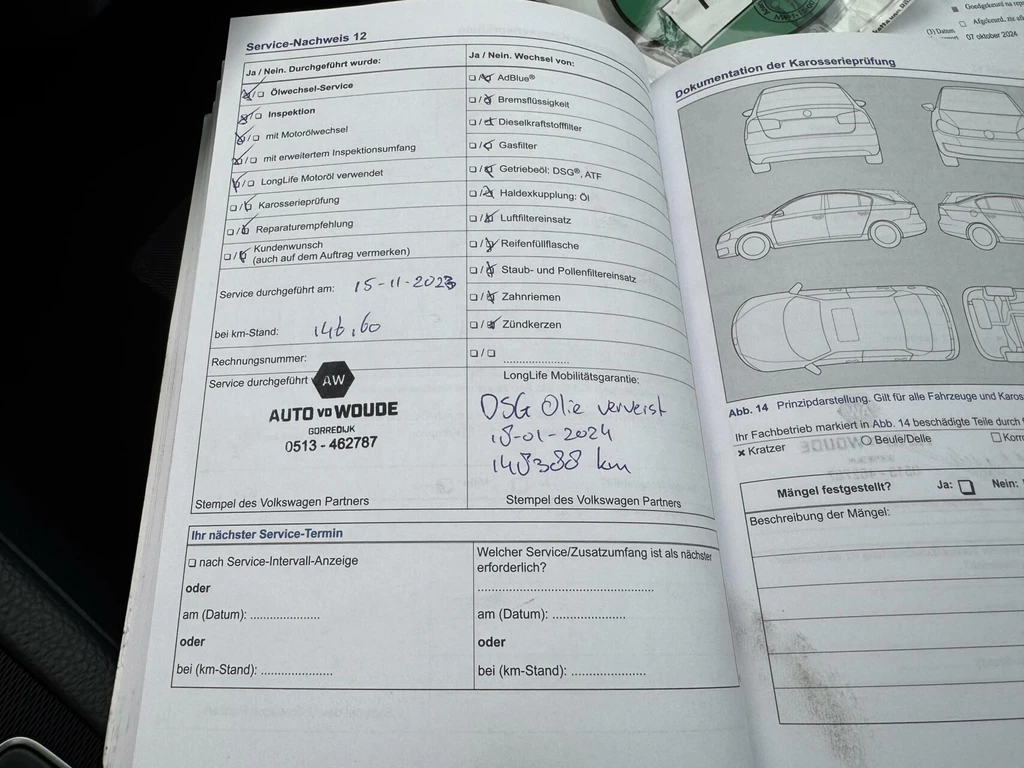 Service-Nachweis 12
Ja / Nein. Durchgeführt wurde:
☒/☐ Ölwechsel-Service
☒/☐ Inspektion
☒/☐ mit Motorölwechsel
☒/☐ mit erweitertem Inspektionsumfang
☒/☐ LongLife Motoröl verwendet
☐/☒ Karosserieprüfung
☐/☒ Reparaturempfehlung
☐/☒ Kundenwunsch
(auch auf dem Auftrag vermerken)
Service durchgeführt am: 15-11-2023
bei km-Stand: 146.160
Rechnungsnummer:
Service durchgeführt
AW
AUTO VD WOUDE
GORREDIJK
0513 - 462787
Stempel des Volkswagen Partners
Ja / Nein. Wechsel von:
☐/☒ AdBlue®
☐/☒ Bremsflüssigkeit
☐/☒ Dieselkraftstofffilter
☐/☒ Gasfilter
☐/☒ Getriebeöl: DSG®, ATF
☐/☒ Haldexkupplung: Öl
☐/☒ Luftfiltereinsatz
☐/☒ Reifenfüllflasche
☐/☒ Staub- und Pollenfiltereinsatz
☐/☒ Zahnriemen
☐/☒ Zündkerzen
☐/☐ ....................
LongLife Mobilitätsgarantie:
DSG Olie ververst
-01-2024
km
Stempel des Volkswagen Partners
Ihr nächster Service-Termin
☐ nach Service-Intervall-Anzeige
oder
am (Datum): ....................
oder
bei (km-Stand): ....................
Welcher Service/Zusatzumfang ist als nächster
erforderlich?
..................................................
am (Datum): ....................
oder
bei (km-Stand): ....................
Goedgekeurd na rep
☐ Afgekeurd, zie
(3) Datum
07 oktober 2024
Dokumentation der Karosserieprüfung
Abb. 14 Prinzipdarstellung. Gilt für alle Fahrzeuge und Karos
Ihr Fachbetrieb markiert in Abb. 14 beschädigte Teile durch
× Kratzer ○ Beule/Delle ☐ Korr
Mängel festgestellt? Ja: ☐ Nein:
Beschreibung der Mängel: